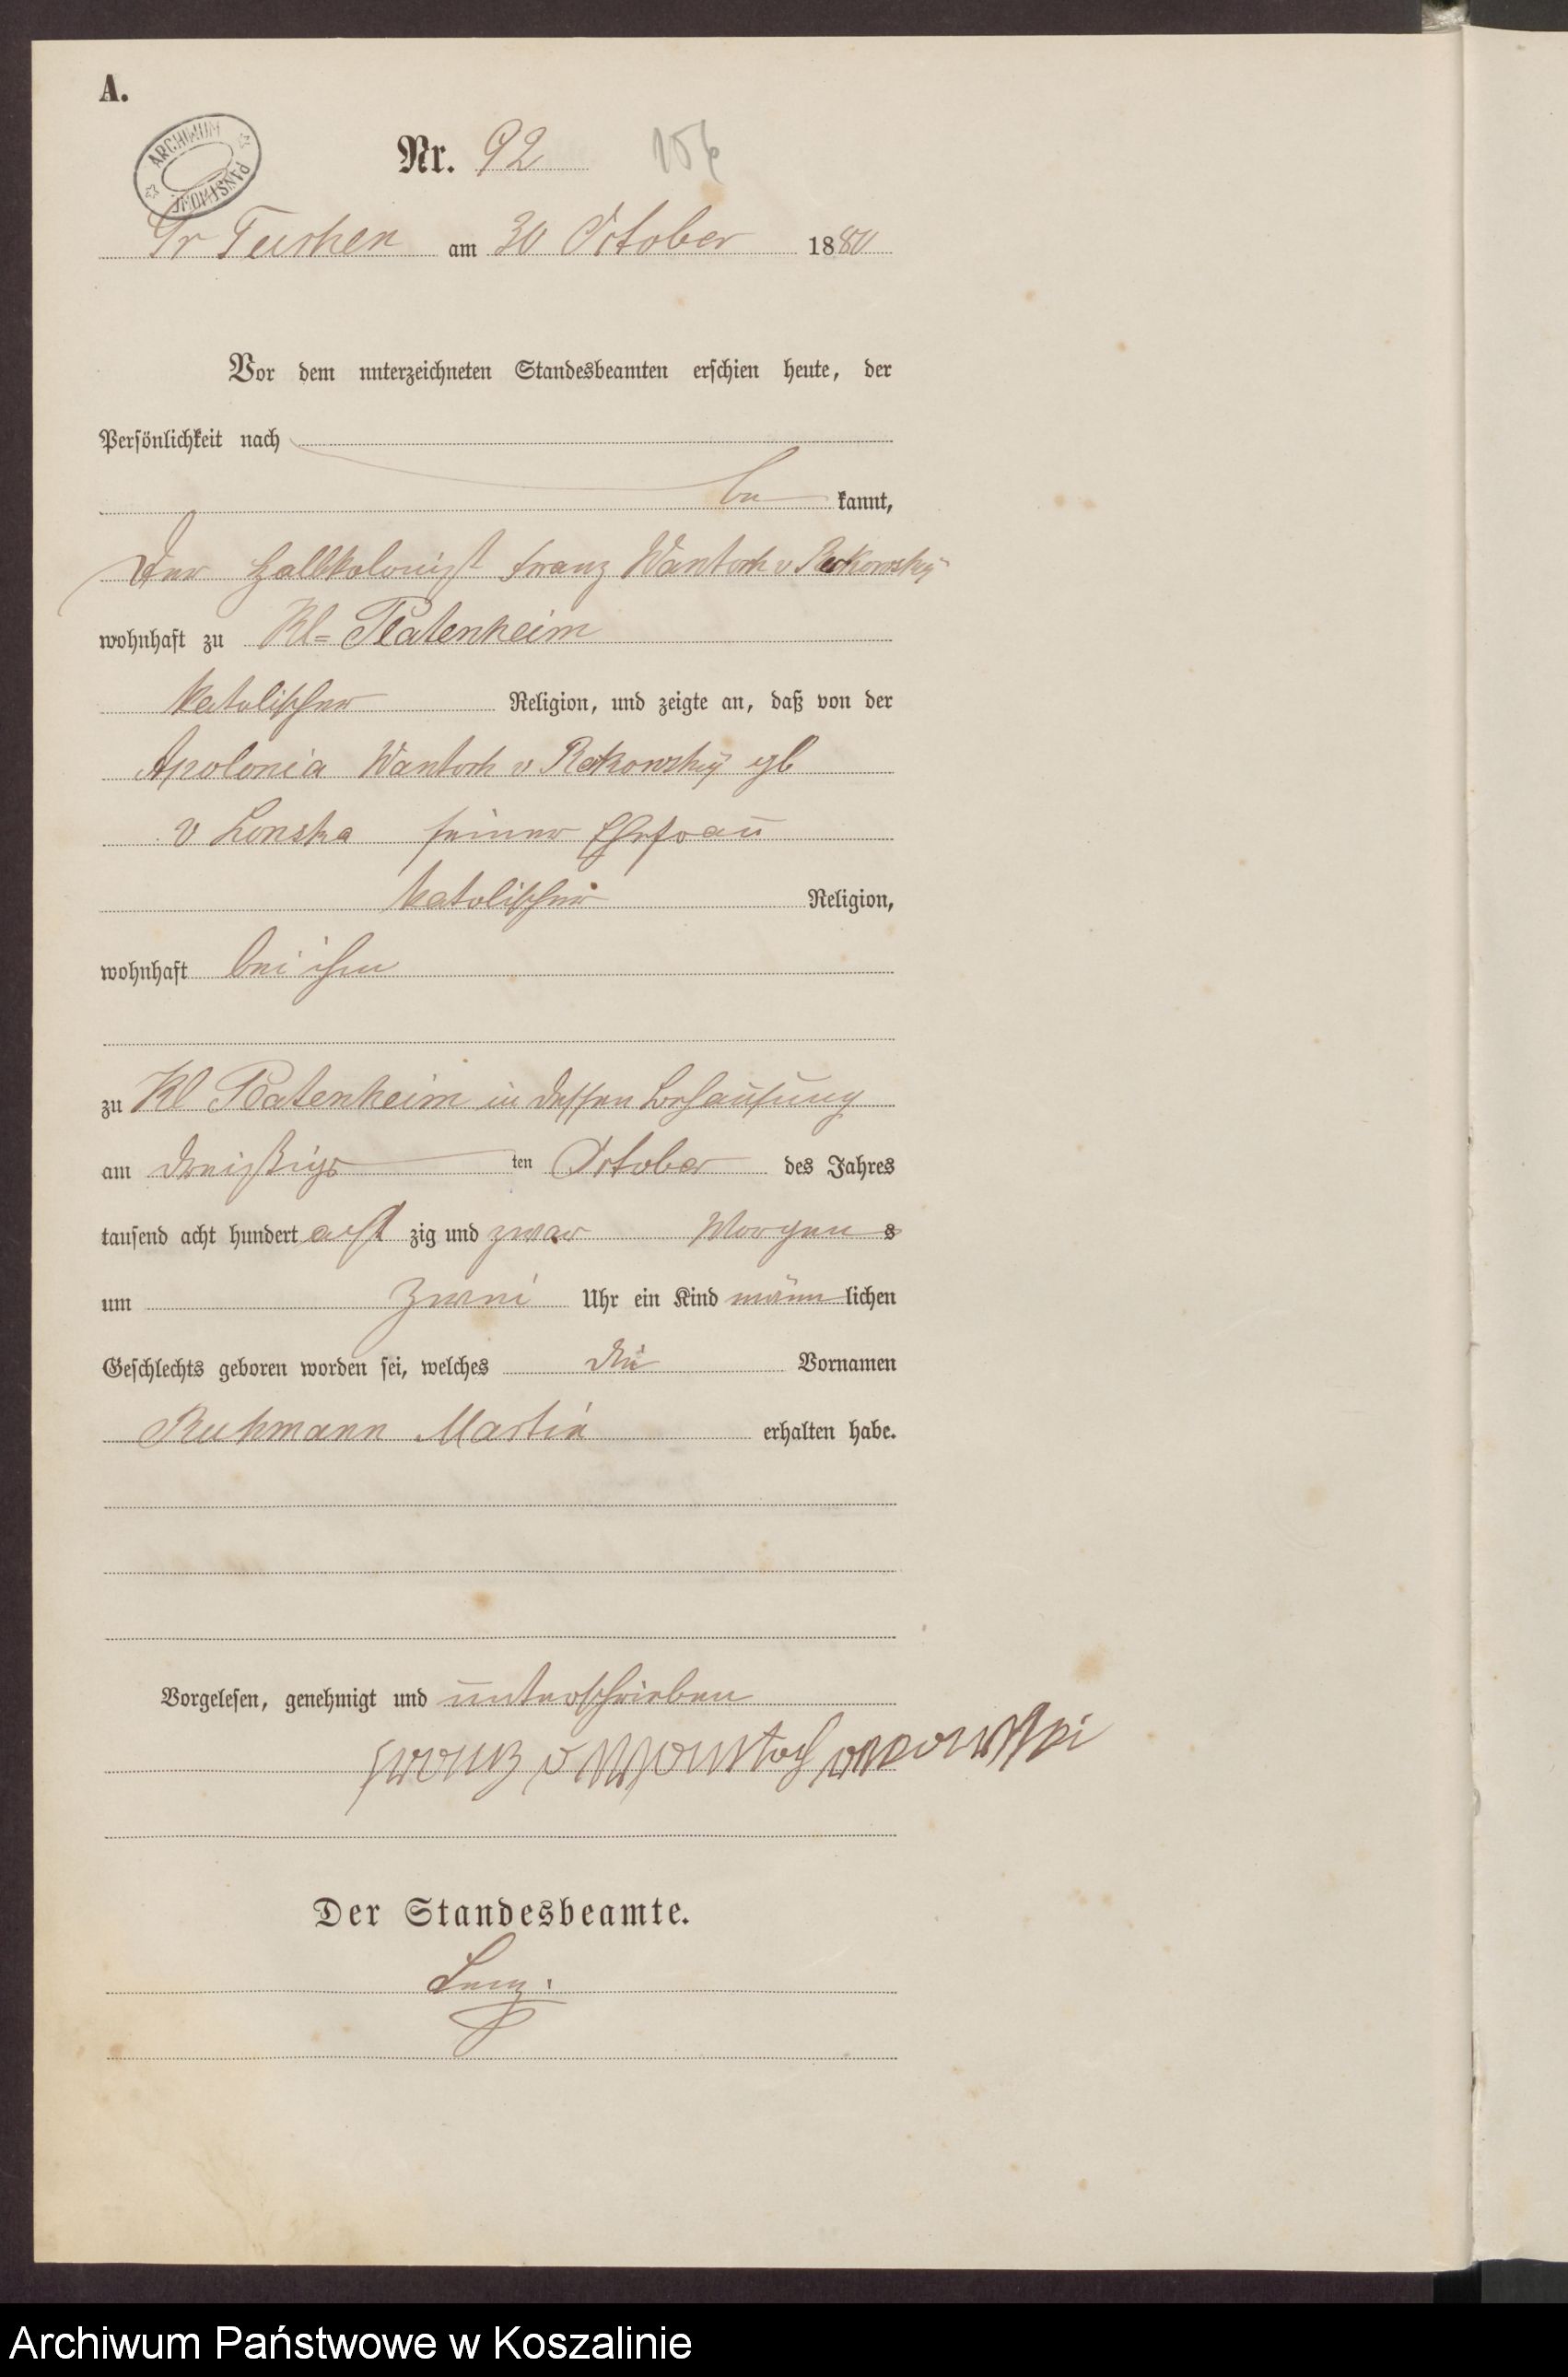 A.
ARCHIWUM PAŃSTWOWE
Nr. 92
Gr Tuchen am 30 October 1880
Vor dem unterzeichneten Standesbeamten erschien heute, der
Persönlichkeit nach
be kannt,
der Halbkolonist Franz Wantoch v Rekowsky
wohnhaft zu Kl= Platenheim
katolischer Religion, und zeigte an, daß von der
Apolonia Wantoch v Rekowsky geb
v Lonska seiner Ehefrau
katolischer Religion,
wohnhaft bei ihm
zu Kl Platenheim in dessen Behausung
am dreißigs ten October des Jahres
tausend acht hundert acht zig und zwar Morgen s
um zwei Uhr ein Kind männ lichen
Geschlechts geboren worden sei, welches die Vornamen
Martin erhalten habe.
Vorgelesen, genehmigt und unterschrieben
Franz v Wantoch
Der Standesbeamte.
Archiwum Państwowe w Koszalinie